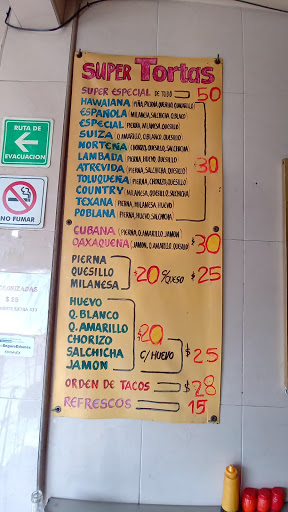 SUPER Tortas
SUPER ESPECIAL DE TODO 50
HAWAIANA (PIÑA, PIERNA, QUESILLO, Q.AMARILLO)
ESPAÑOLA (MILANESA, SALCHICHA, Q.BLACO)
ESPECIAL (PIERNA, MILANESA, QUESILLO)
SUIZA (Q.AMARILLO, Q.BLANCO, QUESILLO)
NORTEÑA (CHORIZO, QUESILLO, SALCHICHA)
LAMBADA (PIERNA, HUEVO, QUESILLO) $30
ATREVIDA (PIERNA, SALCHICHA, QUESILLO)
TOLUQUEÑA (PIERNA, CHORIZO, QUESILLO)
COUNTRY (MILANESA, QUESILLO, SALCHICHA)
TEXANA (PIERNA, MILANESA, HUEVO)
POBLANA (PIERNA, HUEVO, SALCHICHA)
CUBANA (PIERNA, Q.AMARILLO, JAMON)
OAXAQUEÑA (JAMON, Q.AMARILLO, QUESILLO) $30
PIERNA
QUESILLO $20 %QUESO $25
MILANESA
HUEVO
Q. BLANCO
Q. AMARILLO $20
CHORIZO
SALCHICHA C/HUEVO $25
JAMON
ORDEN DE TACOS $28
REFRESCOS 15
RUTA DE
EVACUACIÓN
NO FUMAR
$25